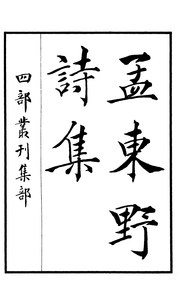 孟東野
詩集
四部叢刊集部